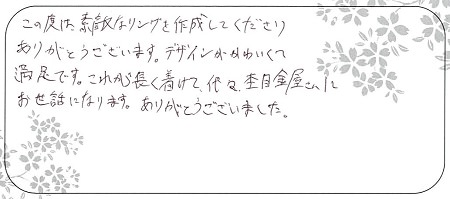 この度は、素敵なリングを作成してくださり
ありがとうございます。デザインがかわいくて
満足です。これから長く着けて、代々、杢目金屋さんに
お世話になります。ありがとうございました。